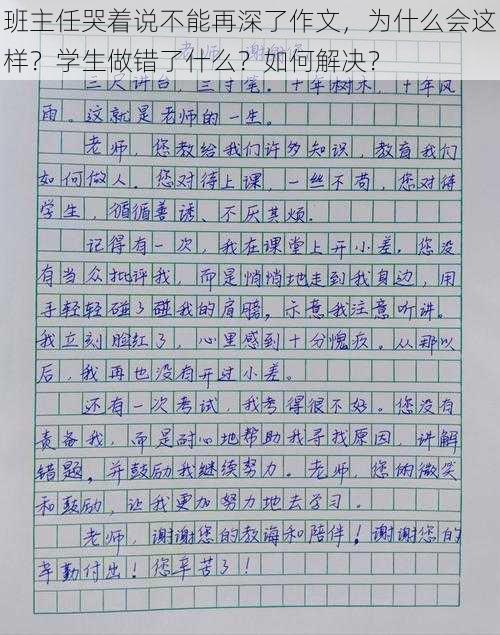 班主任哭着说不能再深了作文，为什么会这
样？学生做错了什么？如何解决？
老师，谢谢您
三尺讲台，三寸笔。十年树木，十年风
雨。这就是老师的一生。
老师，您教给我们许多知识，教育我们
如何做人。您对待上课，一丝不苟，您对待
学生，循循善诱、不厌其烦.
记得有一次，我在课堂上开小差。您没
有当众批评我，而是悄悄地走到我身边，用
手轻轻碰了碰我的肩膀，示意我注意听讲。
我立刻脸红了，心里感到十分愧疚。从那以
后，我再也没有开过小差。
还有一次考试，我考得很不好。您没有
责备我，而是耐心地帮助我寻找原因，讲解
错题，并鼓励我继续努力。老师，您的微笑
和鼓励，让我更加努力地去学习.
老师，谢谢您的教诲和陪伴！谢谢您的
辛勤付出！您辛苦了！